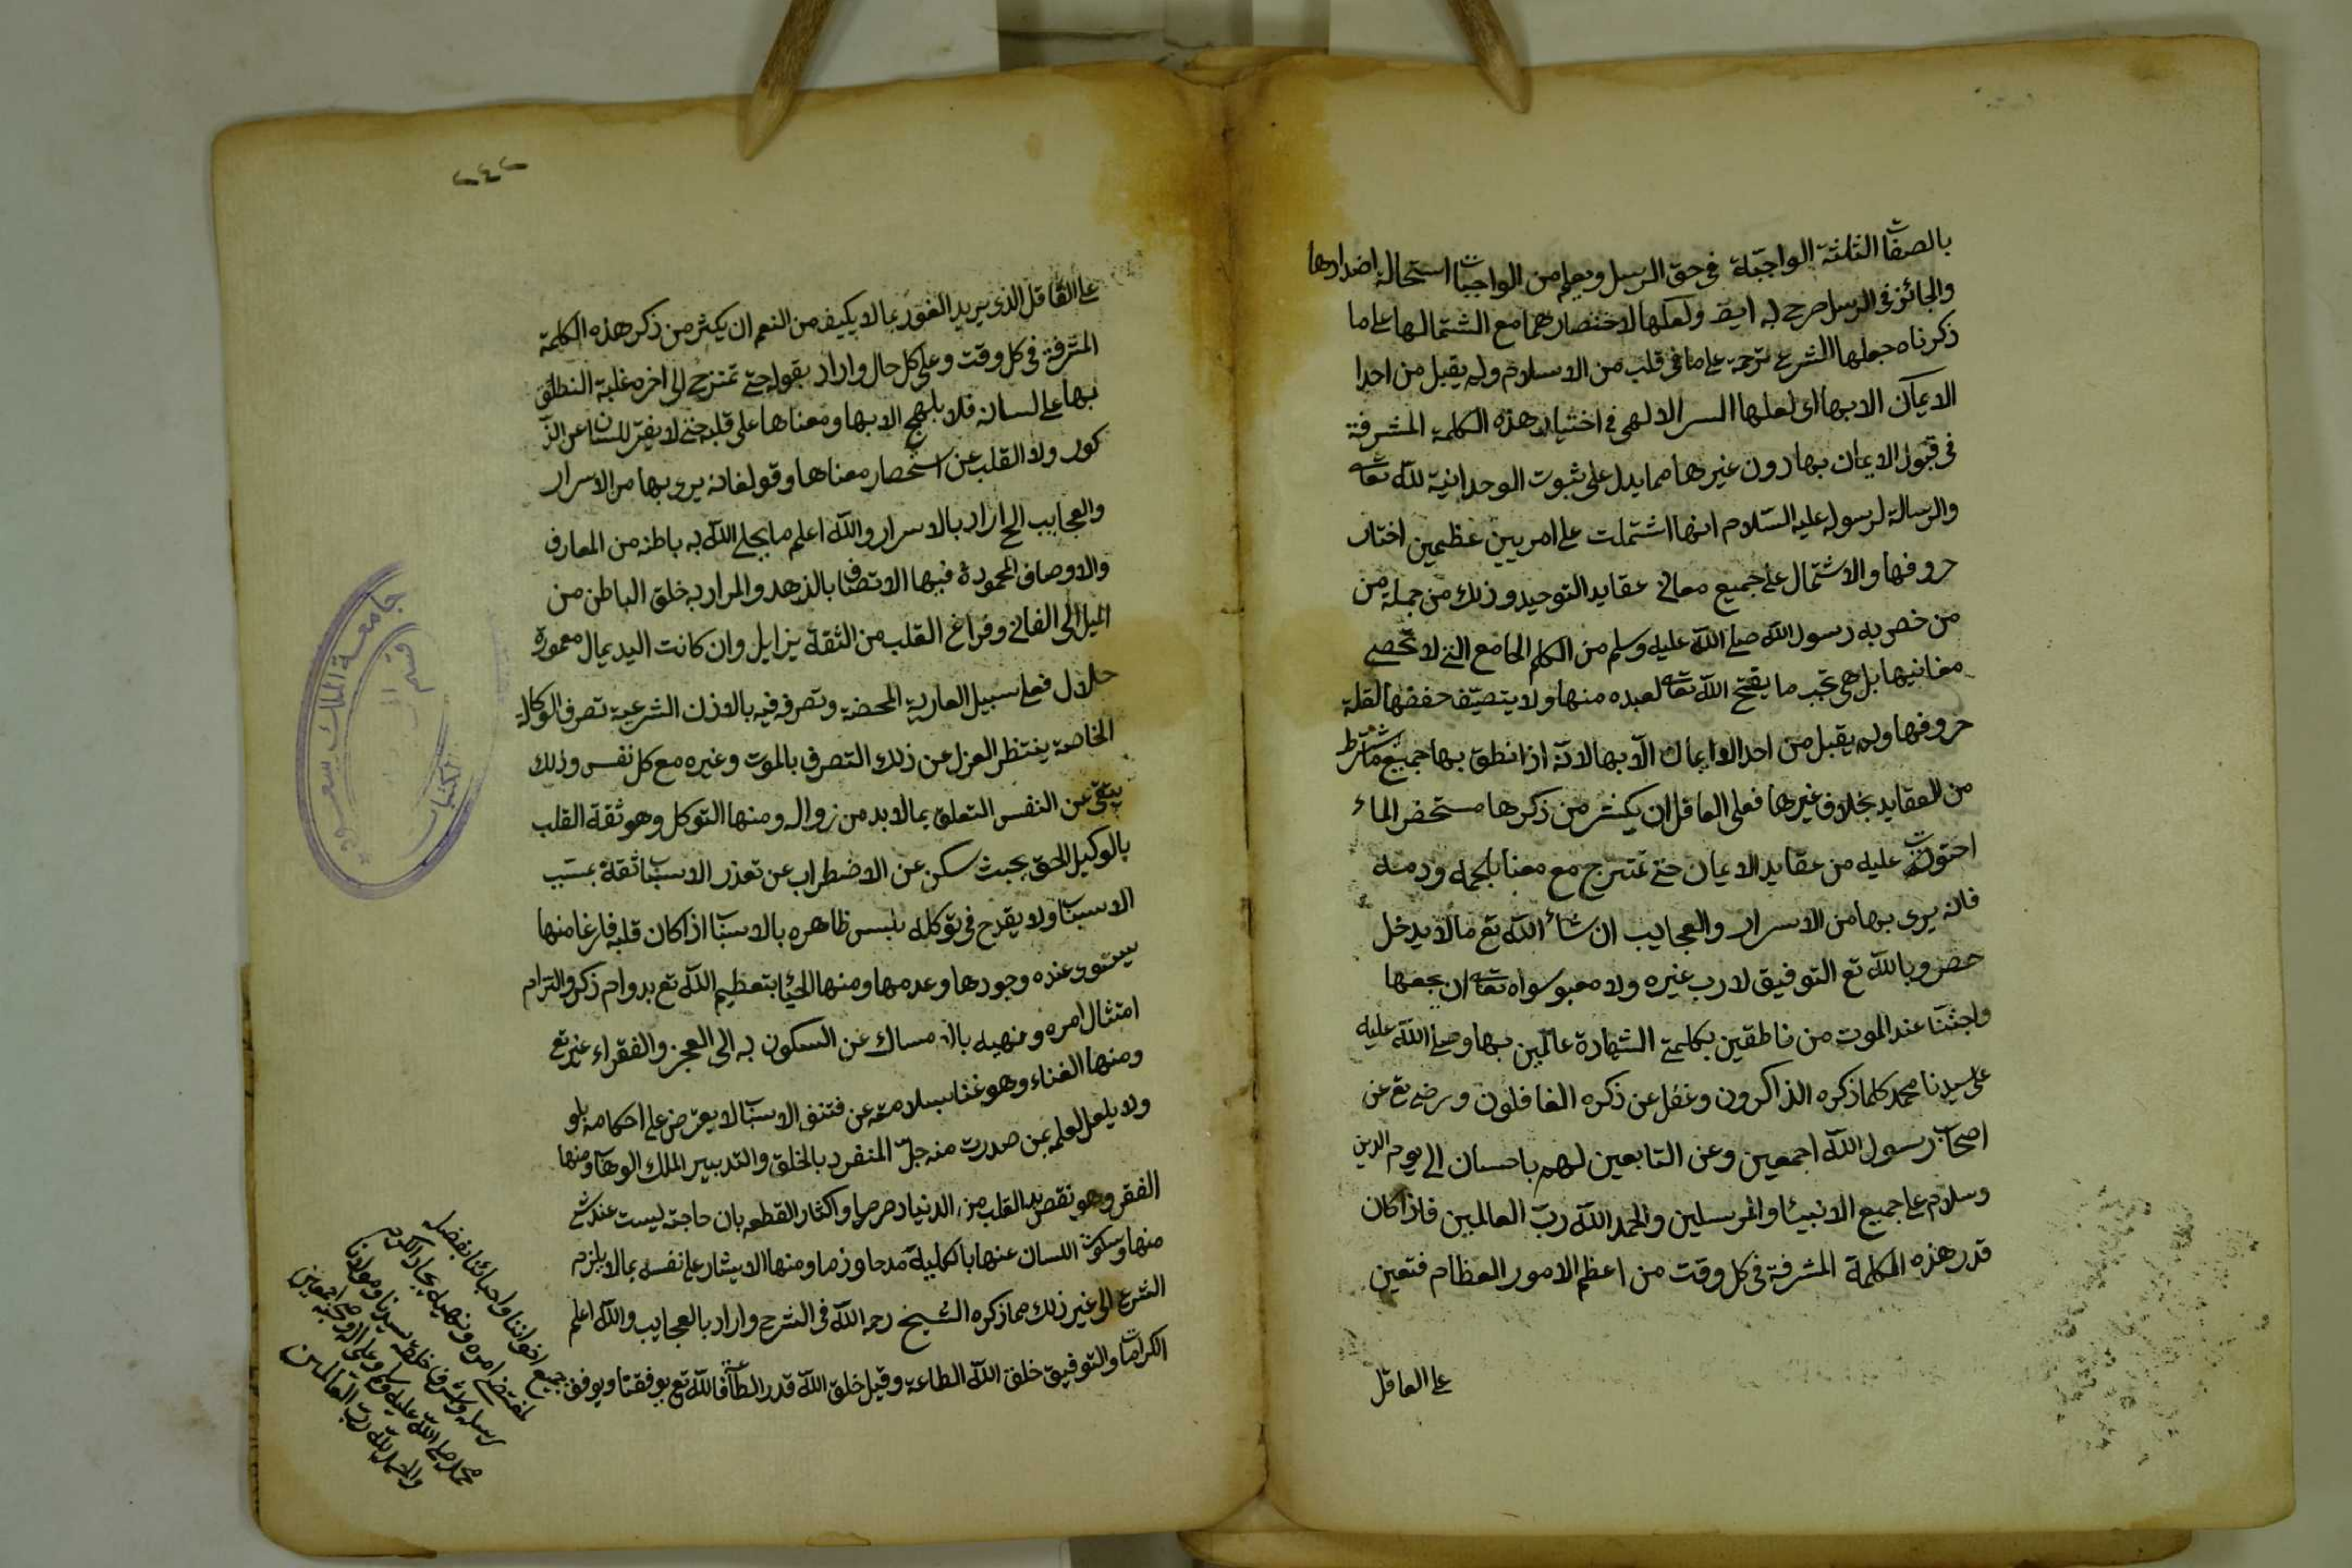 بالصفات الثلثة الواجبة في حق الرسل ويعلم من الواجبات استحالة اضدادها
والجائز في الرسل صرح به ايضا ولعلها لاختصارها مع اشتمالها على ما
ذكرناه جعلها الشرع ترجمة على ما في قلب من الاسلام ولم يقبل من احدا
الايمان الا بها اى لعلها السر الالهى في اختيار هذه الكلمة المشرفة
في قبول الايمان بها دون غيرها مما يدل على ثبوت الوحدانية لله تعالى
والرسالة لرسوله عليه السلام انها اشتملت على امريين عظيمين اختار
حروفها والاشتمال على جميع معاني عقايد التوحيد وذلك من جملة من
من خص به رسول الله صلى الله عليه وسلم من الكلم الجامع التي لا تحصى
معانيها بل هي تجب ما يفتح الله تعالى لعبده منها ولا يتصيف حفضها لقلة
حروفها ولم يقبل من احد الايمان الا بها لانه اذا نطق بها جميع ما شرط
من العقايد بخلاف غيرها فعلى العاقل ان يكثر من ذكرها مستحضر الماء
احتوت عليه من عقايد الايمان حتى تمتزج مع معنا بلحمه ودمه
فانه يرى بها من الاسرار والعجايب ان شاء الله تع مالا يدخل
حصر وبالله تع التوفيق لا رب غيره ولا معبو سواه تعالى ان يجعها
واحبتنا عند الموت من ناطقين بكلمتى الشهادة عالمين بها وصلى الله عليه
على سيدنا محمد كلما ذكره الذاكرون وغفل عن ذكره الغافلون ورضى تع عن
اصحاب رسول الله اجمعين وعن التابعين لهم باحسان الى يوم الدين
وسلام على جميع الانبيئا والمرسلين والحمد الله رب العالمين فاذا كان
قدر هذه الكلمة المشرفة في كل وقت من اعظم الامور العظام فتعين
على العاقل
٢٤٢
على العاقل الذى يريد الفوز بما لا يكيف من النعم ان يكثر من ذكر هذه الكلمة
المشرفة في كل وقت وعلى كل حال واراد بقوله حتى تمتزج الى اخره غلبة النطق
بها على لسانه فلا يلهج الا بها ومعناها على قلبه حتى لا يفتر للسان عن الذ
كور ولا القلب عن استحضار معناها وقوله فانه يرى بها من الاسرار
والعجايب الخ اراد بالاسرار والله اعلم ما يجلى الله به باطنه من المعارف
والاوصاف المحمودة فيها الاتصاف بالذهد والمراد به خلق الباطن من
الميل الى الفانى وفراغ القلب من الثقة بزايل وان كانت اليد بمال معمورة
حلال فعلى سبيل العارية المحضة وتصرف فيه بالاذن الشرعية تصرف الوكالة
الخاصة ينتظر العزل عن ذلك التصرف بالموت وغيره مع كل نفس وذلك
ينقى عن النفس التعلق بما لا بد من زواله ومنها التوكل وهو ثقة القلب
بالوكيل الحق بحيث سكن عن الاضطراب عن تعذر الاسباب ثقة بمسبب
الاسباب ولا يقدح في توكله بلبس ظاهره بالاسباب اذا كان قلبه فارغا منها
يستوى عنده وجودها وعدمها ومنها الحيا بتعظيم الله تع بدوام ذكر والتزام
امتثال امره ونهيه بالامساك عن السكون به الى العجز والفقراء غير تع
ومنها الغناء وهو غنا بسلامة عن فتنة الاسباب لا يعترض على احكامه بلو
ولا يلعل لعلمه بمن صدرت منه جل المنفرد بالخلق والتدبير الملك الوهاب ومنها
الفقر وهو نقص يد القلب من الدنيا حرصا واكثار القطعه بان حاجته ليست عند شئ
منها وسكوت اللسان عنها بالكلية مدحا وذما ومنها الايثار على نفسه بما لا يلزم
الشرع الى غير ذلك مما ذكره الشيخ رحمه الله في الشرح واراد بالعجايب والله اعلم
الكرامات والتوفيق خلق الله الطاعة وقيل خلق الله قدر الطاعة فالله تع يوفقنا ويوفق
جميع اخواننا واحبائنا بفضله
لمقتضى امره ونهيه بجاه اكرم
رسله واشرف خلقه سيدنا ومولانا
محمد صلى الله عليه وسلم وعلى اله وصحبه اجمعين
والحمد لله رب العالمين
جامعة الملك سعود
قسم